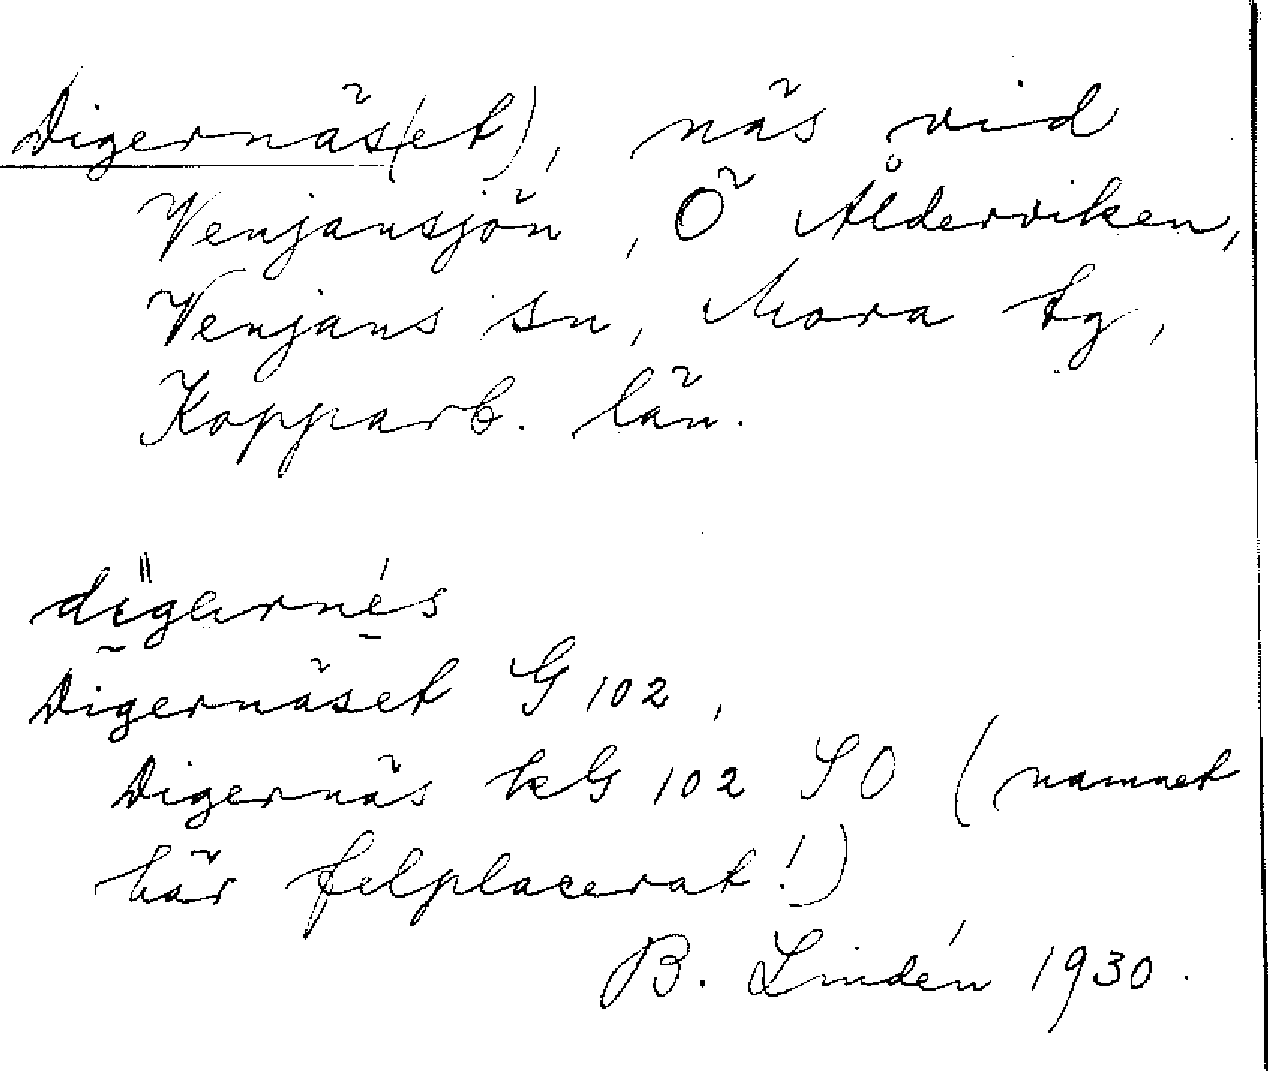 Digernäs(et), näs vid
Venjansjön, Ö Ålderviken,
Venjans sn, Mora tg,
Kopparb. län.
Digernäset G 102,
Digernäs kG 102 SO (namnet
här felplacerat!)
B. Lindén 1930.